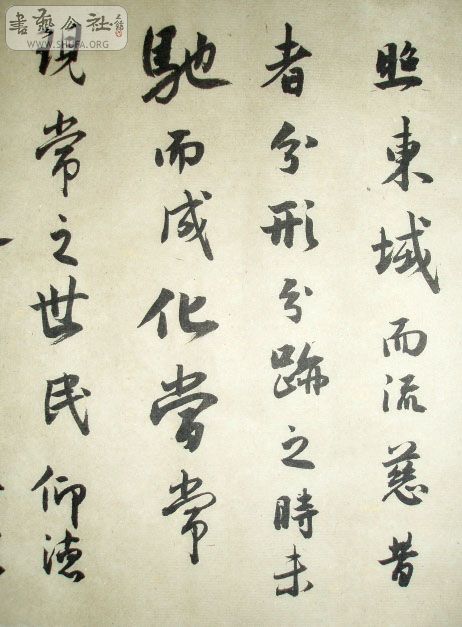 書藝公社
WWW.SHUFA.ORG
照東域而流慈昔
者分形分跡之時未
馳而成化當常
現常之世民仰德